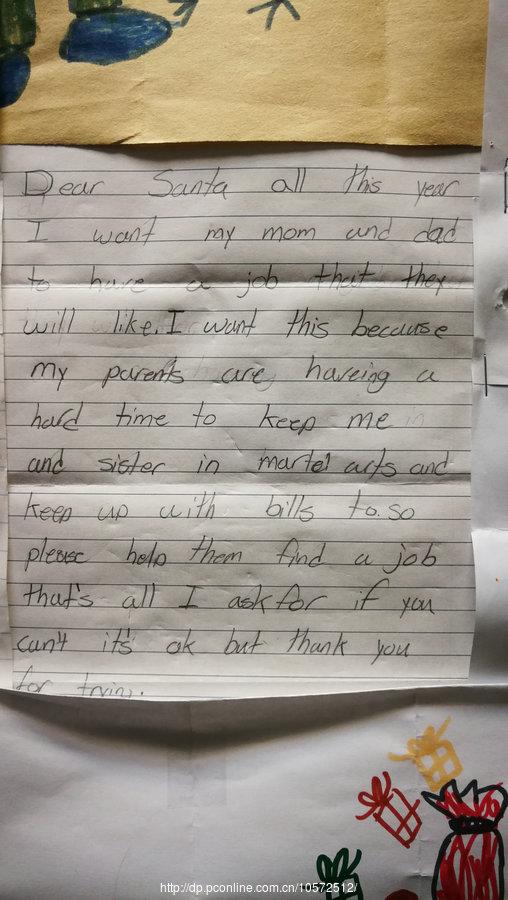 Dear Santa all this year
I want my mom and dad
to have a job that they
will like. I want this because
my parents are haveing a
hard time to keep me
and sister in martel arts and
keep up with bills to. so
please help them find a job
that's all I ask for if you
can't it's ok but thank you
for trying.
http://dp.pconline.com.cn/10572512/